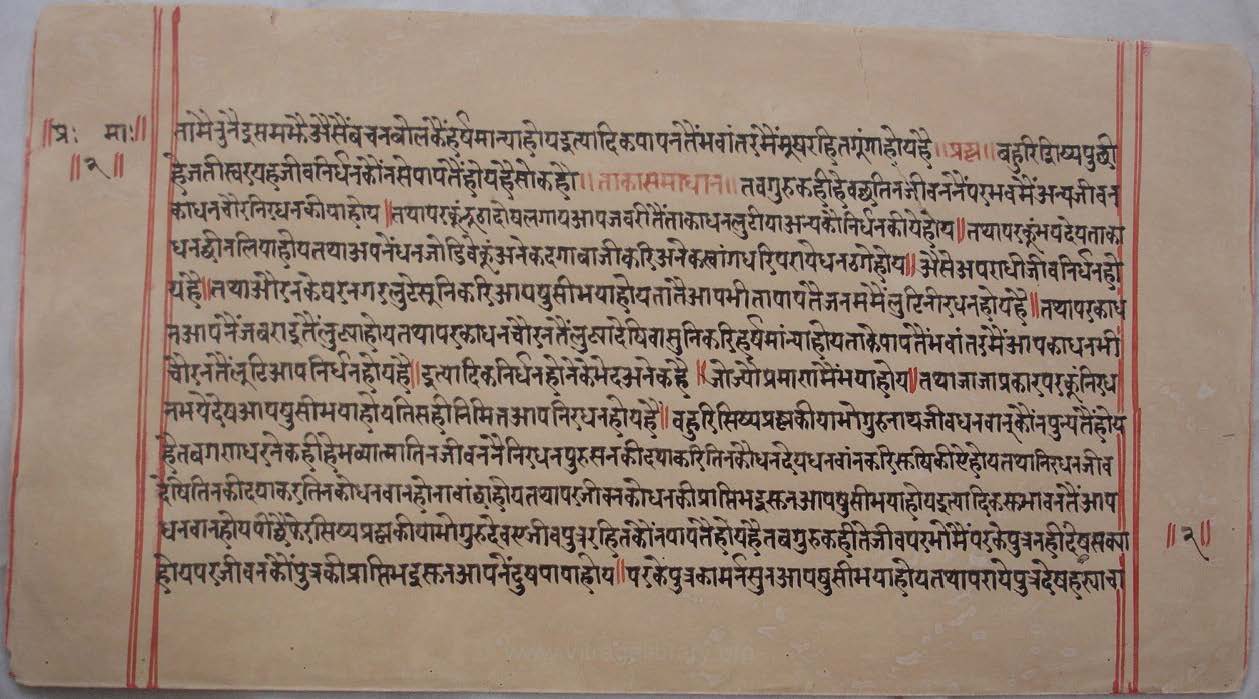 ॥प्रः माः॥
॥२॥
तामैंनुनैंदूसमझैअैसैंबचनबोलकैंहर्षमान्याहोयइत्यादिकपापनतैंभवांतरमैंमूषरहितगूंगाहोयहै॥प्रश्न॥बहुरिशिष्यपुछी
हेजतीस्वरयहजीवनिर्धनकौंनसेपापतैंहोयहैसोकहौ॥ताकासमाधान॥तवगुरुकहीहेवछतिनजीवननैंपरभवमैंअन्यजीवन
काधनचौरनिरधनकीयाहोय॥तथापरकूंझूठादोषलगायआपजवरीतैंताकाधनलुटीयाअन्यकौनिर्धनकीयेहोय॥तथापरकूंभयदेयताका
धनछीनलियाहोयतथाअपनेंधनजोडिवेकूंअनेकदगाबाजीकरिअनेकस्वांगधरिपरायेधनठगेहोय॥अैसेअपराधीजीवनिर्धनहो
यहै॥तथाऔरनकेघरनगरलुटेसुनिकरिआपषुसीभयाहोयतातैआपभीतापापतैजनममेंमैंलुटिनीरधनहोयहै॥तथापरकाध
नआपनैंजबराइतैंलुट्याहोयतथापरकाधनचौरनतैंलुट्यादेषिवासुनिकरिहर्षमांन्याहोयताकेपापतैंभवांतरमैंआपकाधनभी
चौरनतैंलूटिआपनिर्धनहोयहै॥इत्यादिकनिर्धनहोनेकेभेदअनेकहै॥जोज्योप्रमाणमैंभयाहोय॥तथाजाजाप्रकारपरकूंनिरध
नभयेदेषआपषुसीभयाहोयतिसहीनिमितआपनिरधनहोयहै॥बहुरिसिष्यप्रश्नकीयाभोगुरुनाथजीवधनवानकौंनपुन्यतैंहोय
हैतबगणधरनेकहीहेभव्यात्मातिनजीवननैनिरधनपुरुसनकीदयाकरितिनकौधनदेयधनवांनकरिसुषिकीऐहोयतथानिरधनजीव
देषितिनकीदयाकरतिनकोधनवानहोनावांछाहोयतथापरजीवनकोधनकीप्राप्तिभइसुनआपषुसीभयाहोयइत्यादिकसभावनतैंआप
धनवानहोयपीछैफेरसिष्यप्रश्नकीयाभोगुरुदेवएजीवपुत्ररहितकौंनपापतैहोयहैतबगुरुकहीतेजीवपरभौमैंपरकेपुत्रनहीदेषसक्या
होयपरजीवनकौंपुत्रकीप्राप्तिभइसुनआपनेंदुषपायाहोय॥परकेपुत्रकामर्नसुनआपषुसीभयाहोयतथापरायेपुत्रदेष
॥२॥